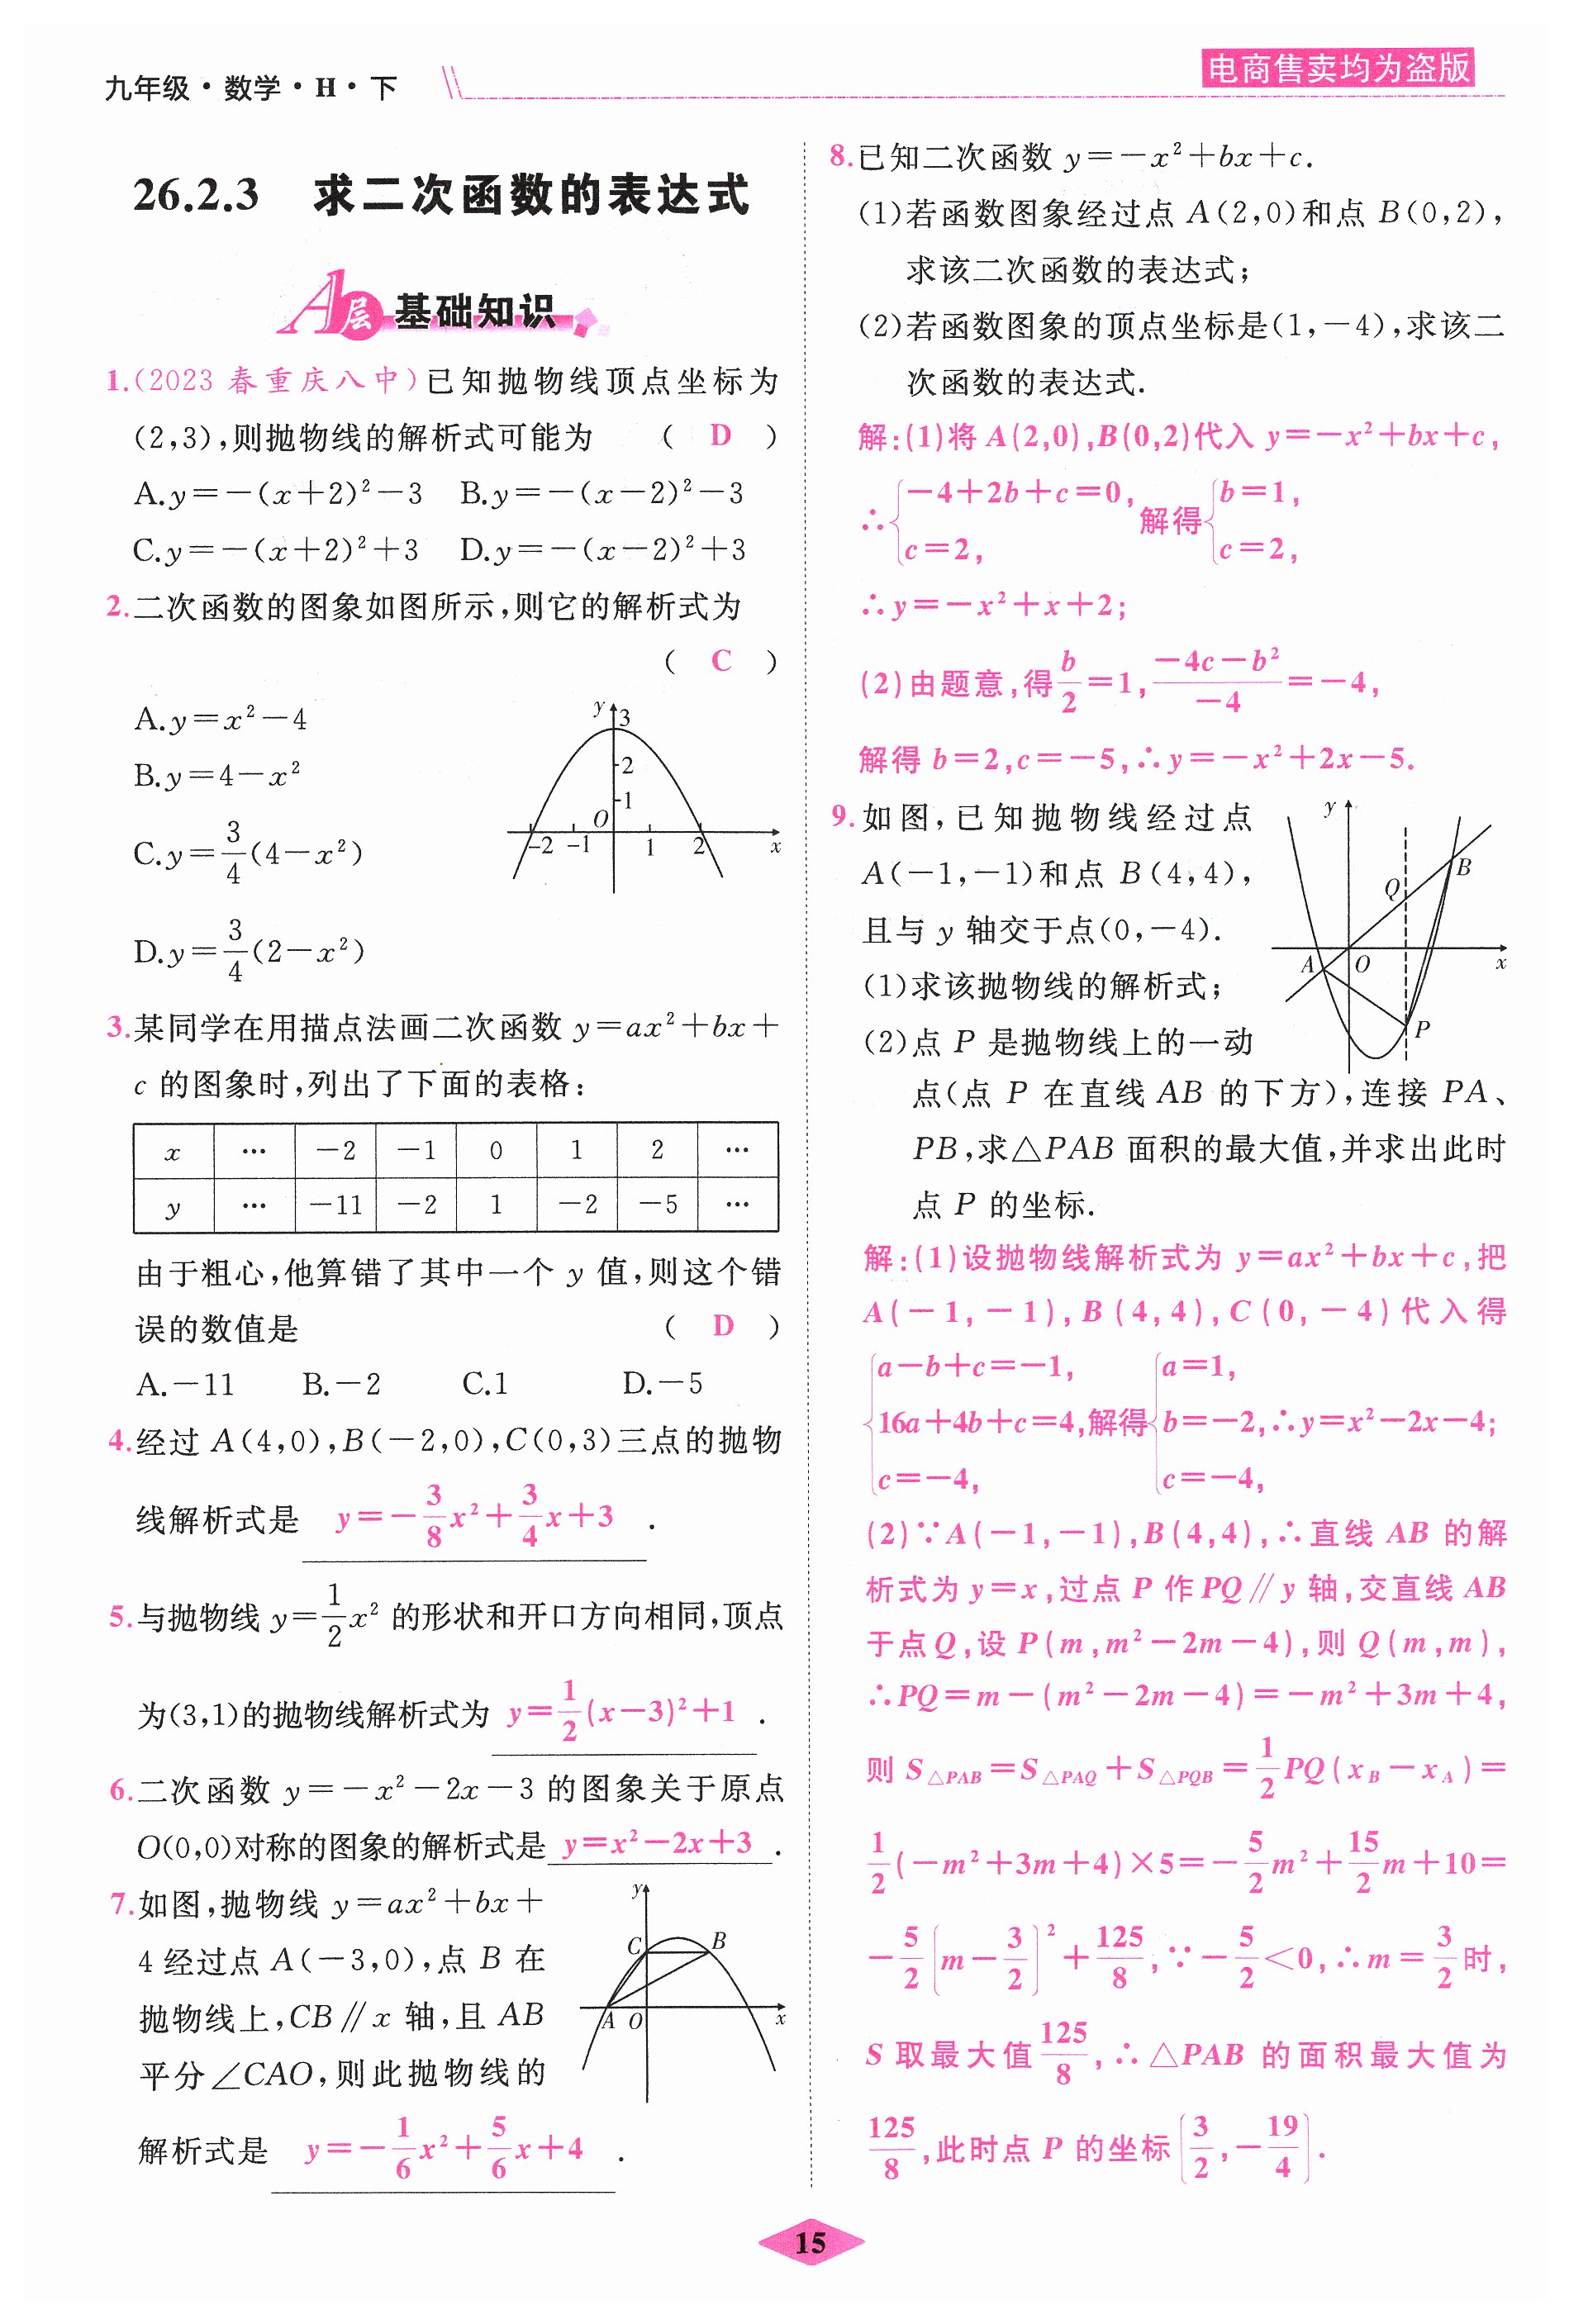 九年级·数学·H·下
电商售卖均为盗版
26.2.3 求二次函数的表达式
A层 基础知识
1.(2023 春重庆八中)已知抛物线顶点坐标为
(2,3),则抛物线的解析式可能为 ( D )
A.y=-(x+2)²-3 B.y=-(x-2)²-3
C.y=-(x+2)²+3 D.y=-(x-2)²+3
2.二次函数的图象如图所示,则它的解析式为
( C )
A.y=x²-4
B.y=4-x²
C.y=3/4(4-x²)
D.y=3/4(2-x²)
y 3
2
1
O
-2 -1 1 2 x
3.某同学在用描点法画二次函数 y=ax²+bx+
c 的图象时,列出了下面的表格:
x … -2 -1 0 1 2 …
y … -11 -2 1 -2 -5 …
由于粗心,他算错了其中一个 y 值,则这个错
误的数值是 ( D )
A.-11 B.-2 C.1 D.-5
4.经过 A(4,0),B(-2,0),C(0,3)三点的抛物
线解析式是 y=-3/8x²+3/4x+3 .
5.与抛物线 y=1/2x² 的形状和开口方向相同,顶点
为(3,1)的抛物线解析式为 y=1/2(x-3)²+1 .
6.二次函数 y=-x²-2x-3 的图象关于原点
O(0,0)对称的图象的解析式是 y=x²-2x+3 .
7.如图,抛物线 y=ax²+bx+
4 经过点 A(-3,0),点 B 在
抛物线上,CB∥x 轴,且 AB
平分∠CAO,则此抛物线的
解析式是 y=-1/6x²+5/6x+4 .
y
C B
A O x
8.已知二次函数 y=-x²+bx+c.
(1)若函数图象经过点 A(2,0)和点 B(0,2),
求该二次函数的表达式;
(2)若函数图象的顶点坐标是(1,-4),求该二
次函数的表达式.
解:(1)将 A(2,0),B(0,2)代入 y=-x²+bx+c,
∴{-4+2b+c=0, c=2, 解得{b=1, c=2,
∴y=-x²+x+2;
(2)由题意,得b/2=1,(-4c-b²)/-4=-4,
解得 b=2,c=-5,∴y=-x²+2x-5.
9.如图,已知抛物线经过点
A(-1,-1)和点 B(4,4),
且与 y 轴交于点(0,-4).
(1)求该抛物线的解析式;
(2)点 P 是抛物线上的一动
点(点 P 在直线 AB 的下方),连接 PA、
PB,求△PAB 面积的最大值,并求出此时
点 P 的坐标.
y
B
Q
A O x
P
解:(1)设抛物线解析式为 y=ax²+bx+c,把
A(-1,-1),B(4,4),C(0,-4)代入得
{a-b+c=-1, {a=1,
16a+4b+c=4,解得 b=-2,∴y=x²-2x-4;
c=-4, c=-4,
(2)∵A(-1,-1),B(4,4),∴直线 AB 的解
析式为 y=x,过点 P 作PQ∥y 轴,交直线 AB
于点Q,设 P(m,m²-2m-4),则 Q(m,m),
∴PQ=m-(m²-2m-4)=-m²+3m+4,
则 S△PAB=S△PAQ+S△PQB=1/2PQ(xB-xA)=
1/2(-m²+3m+4)×5=-5/2m²+15/2m+10=
-5/2(m-3/2)²+125/8,∵-5/2<0,∴m=3/2时,
S 取最大值125/8,∴△PAB 的面积最大值为
125/8,此时点 P 的坐标(3/2,-19/4).
15